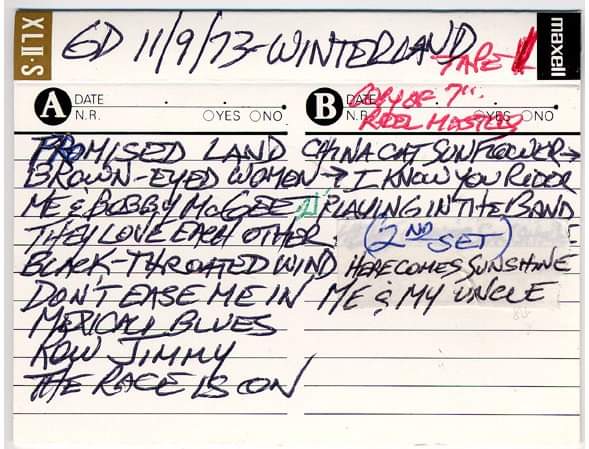 XLII-S
GD 11/9/73-WINTERLAND
TAPE 1
maxell
A DATE . .
N.R. YES NO
PROMISED LAND
BROWN-EYED WOMEN
ME & BOBBY McGEE
THEY LOVE EACH OTHER
BLACK-THROATED WIND
DON'T EASE ME IN
MEXICALI BLUES
ROW JIMMY
THE RACE IS ON
B DATE
N.R. YES NO
COPY OF 7"
REEL MASTERS
CHINA CAT SUNFLOWER→
→I KNOW YOU RIDER
PLAYING IN THE BAND
(2ND SET)
HERE COMES SUNSHINE
ME & MY UNCLE